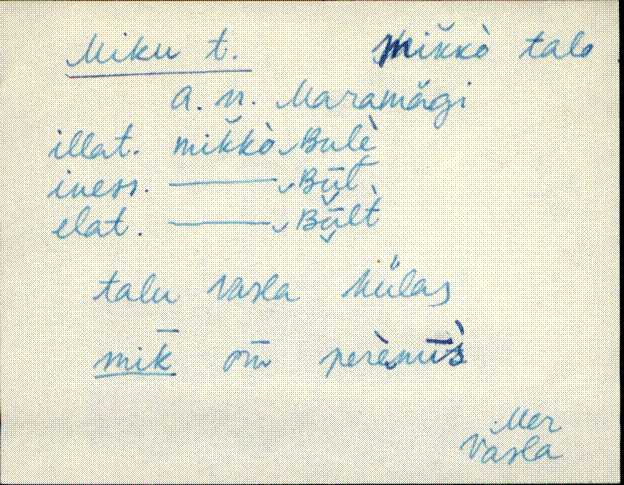 Miku t. mik̆kò talo
a. n. Maramägi
illat. mik̆kò Bulè
iness. ——— Būl̀
elat. ——— Būlt̀
talu Vasla külas
mik̄ om̄ perèmīs̀
Mer
Vasla